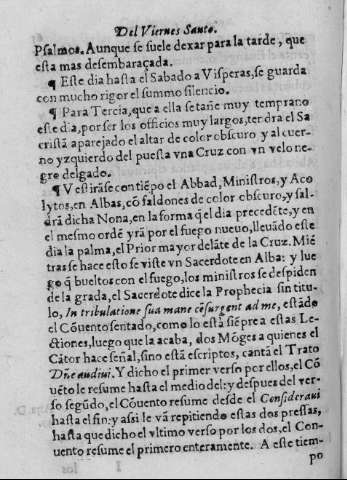 Del Viernes Santo.
Psalmos. Aunque se suele dexar para la tarde, que
esta mas desembaraçada.
¶ Este dia hasta el Sabado a Visperas, se guarda
con mucho rigor el summo silencio.
¶ Para Tercia, que a ella se tañe muy temprano
este dia, por ser los officios muy largos, tendra el Sa
cristã aparejado el altar de color obscuro y al cuer-
no yzquierdo del puesta vna Cruz con vn velo ne-
gre delgado.
¶ Vestirãse con tiẽpo el Abbad, Ministros, y Aco
lytos, en Albas, cõ faldones de color obscuro, y sal-
drã dicha Nona, en la forma q̃ el dia precedẽte, y en
el mesmo ordẽ yrã por el fuego nueuo, lleuãdo este
dia la palma, el Prior mayor delãte de la Cruz. Miẽ
tras se hace esto se viste vn Sacerdote en Alba: y lue
go q̃ bueltos con el fuego, los ministros se despiden
de la grada, el Sacerdote dice la Prophecia sin titu-
lo, In tribulatione sua mane cõsurgent ad me, estãdo
el Cõuento sentado, como lo està siẽpre a estas Le-
ctiones, luego que la acaba, dos Mõges a quienes el
Cãtor hace señal, sino està escriptos, cantã el Trato
Dñe audiui. Y dicho el primer verso por ellos, el Cõ
uẽto le resume hasta el medio del: y despues del ver-
so segũdo, el Cõuento resume desde el Consideraui
hasta el fin: y assi le và repitiendo estas dos pressas,
hasta que dicho el vltimo verso por los dos, el Con-
uento resume el primero enteramente. A este tiem-
I
po